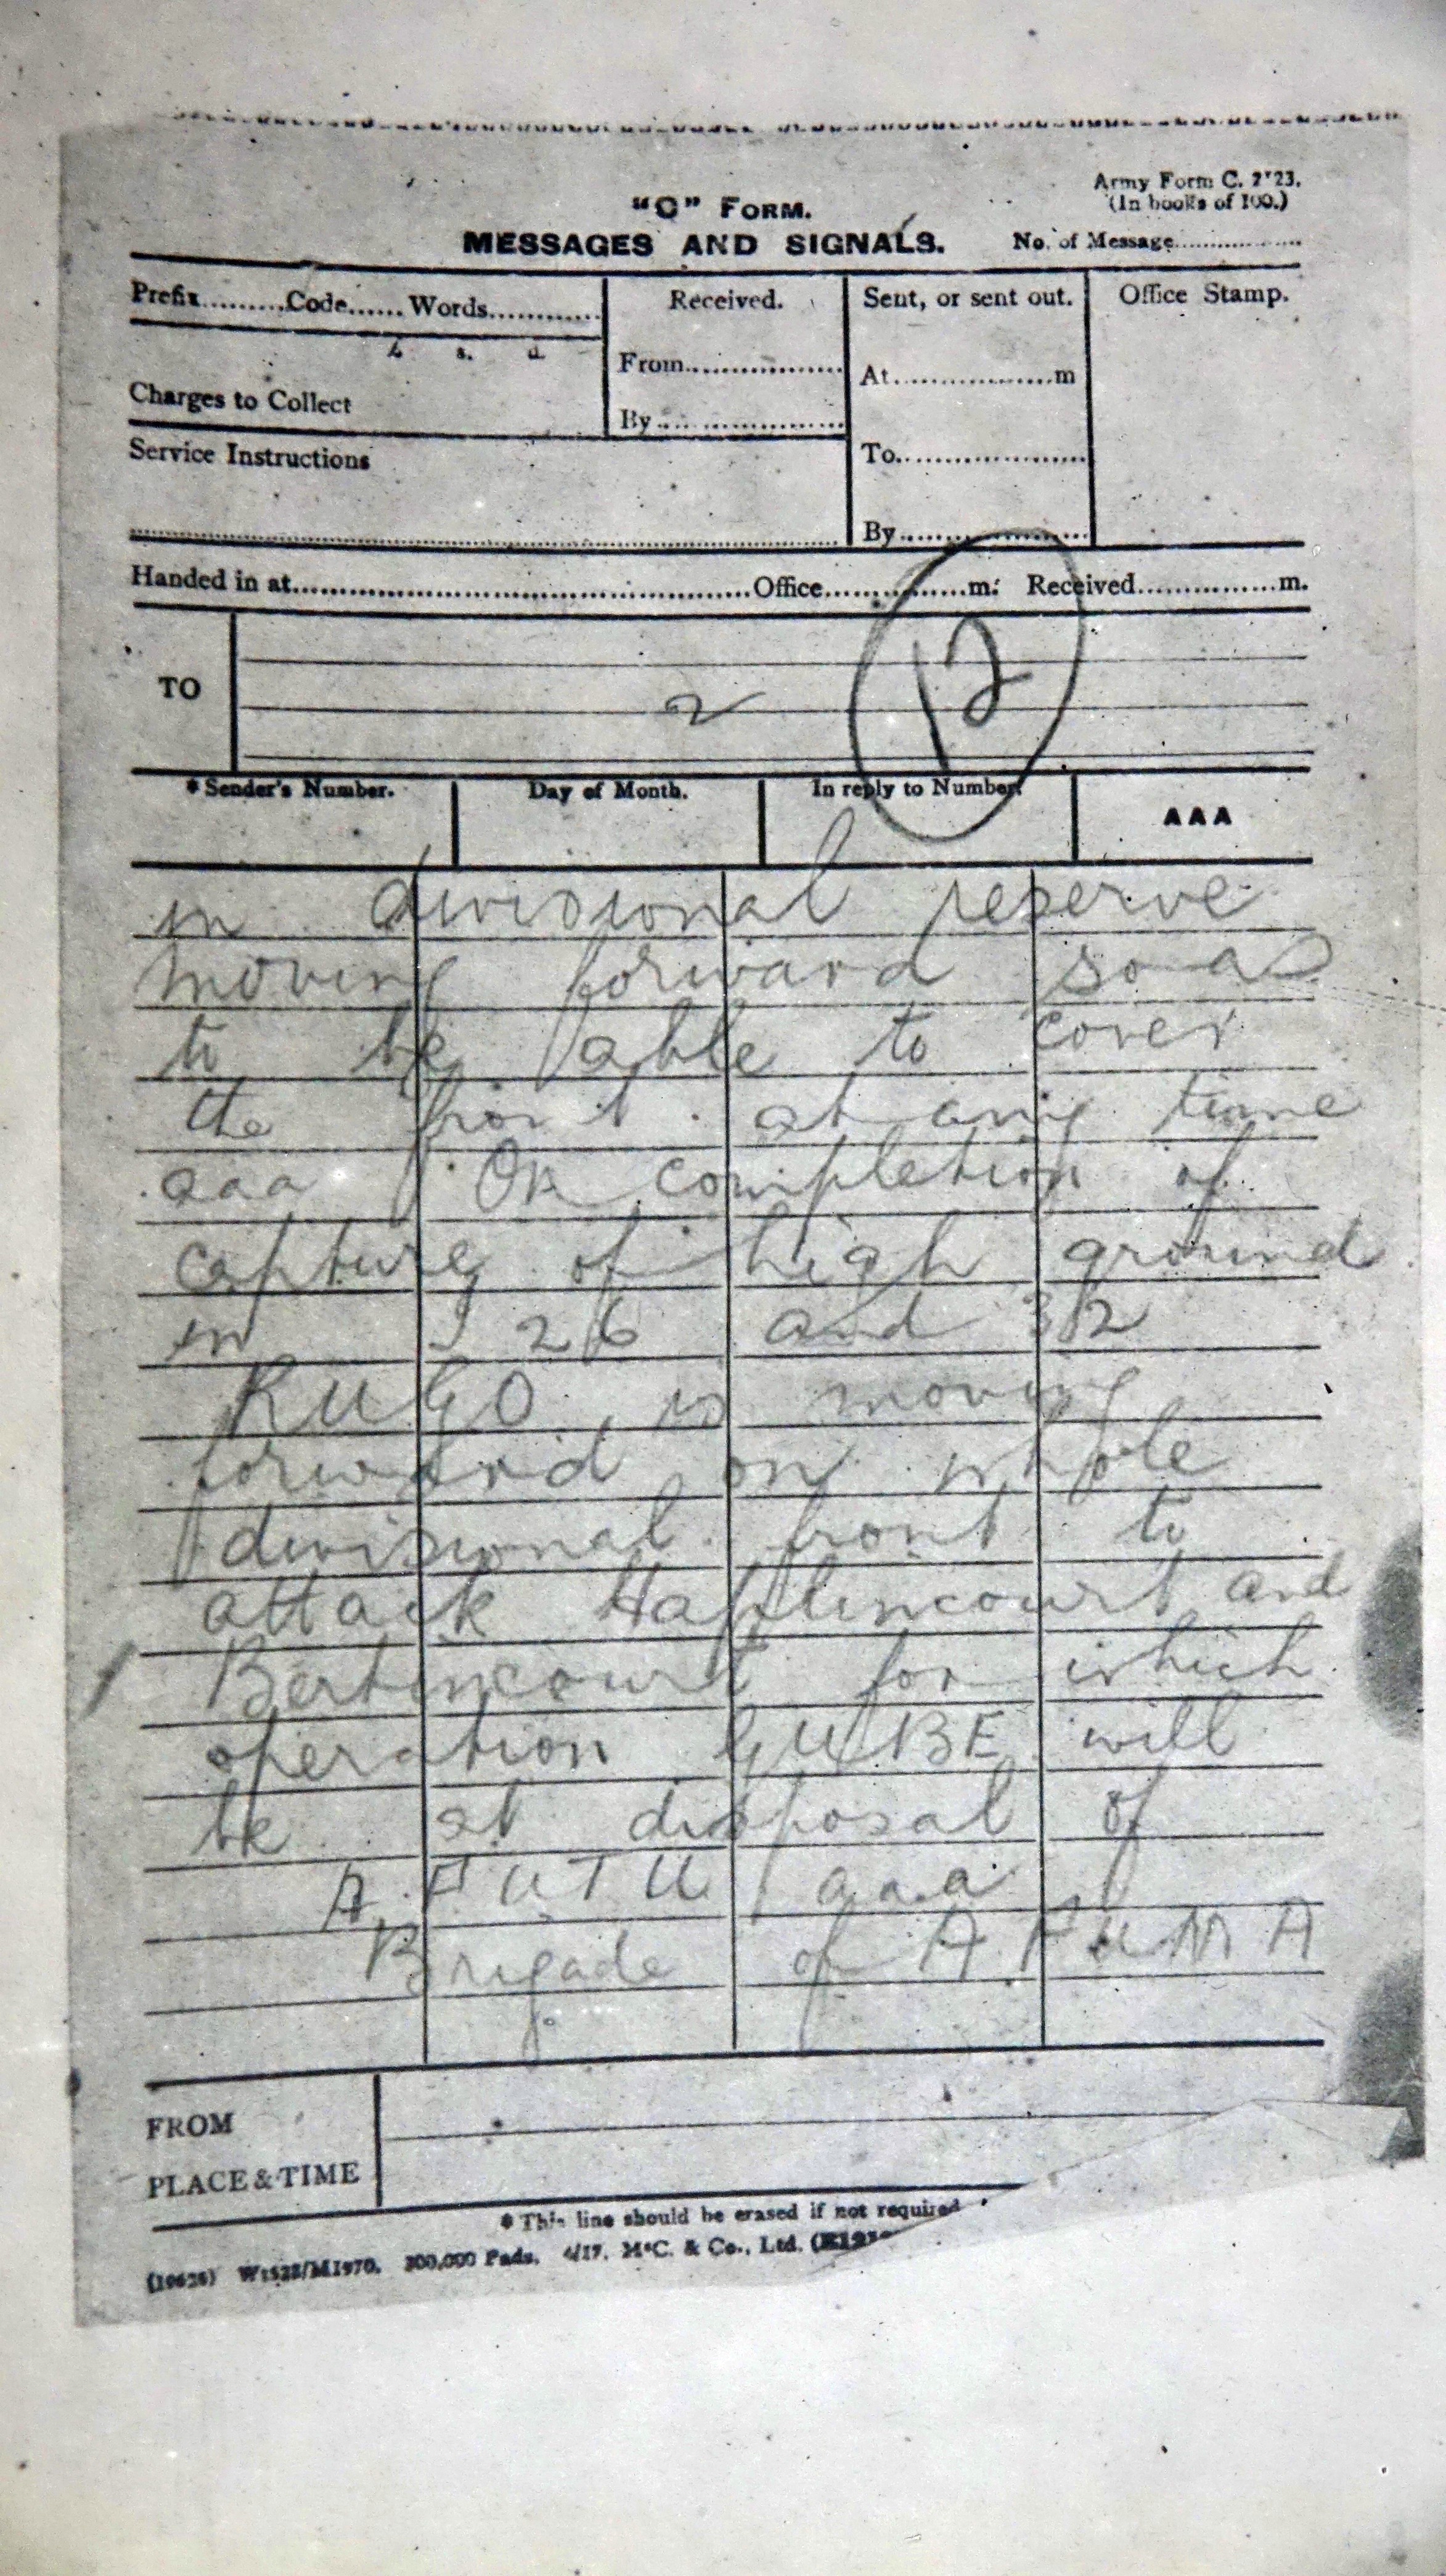 "C" FORM.
Army Form C. 2123.
(In books of 100.)
MESSAGES AND SIGNALS.
No. of Message
Prefix Code Words
Received.
Sent, or sent out.
Office Stamp.
£ s. d.
From
At m
Charges to Collect
By
Service Instructions
To
By
Handed in at Office m. Received m.
TO
2
12
* Sender's Number.
Day of Month.
In reply to Number.
AAA
in divisional reserve
moving forward so as
to be able to cover
the front at any time
aaa On completion of
capture of high ground
in 26 and 32
RUGO is moving
forward on whole
divisional front to
attack Haplincourt and
Bertincourt for which
operation GUBE will
be at disposal of
A.FUTU aaa
Brigade of A.FUMA
FROM
PLACE & TIME
* This line should be erased if not required
300,000 Pads. 4/17. McC. & Co., Ltd.